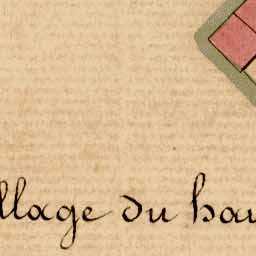 llage du hau